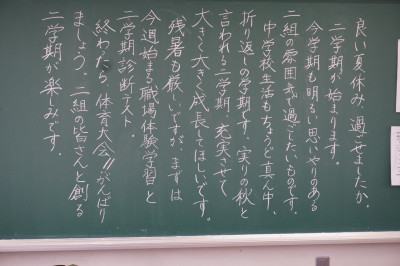 良い夏休み、過ごせましたか。
二学期が始まります。
今学期も明るい思いやりのある
二組の雰囲気で過ごしたいものです。
中学校生活もちょうど真ん中、
折り返しの学期です。実りの秋と
言われる二学期、充実させて
大きく大きく成長してほしいです。
残暑も厳しいですが、まずは
今週始まる職場体験学習と
二学期診断テスト。
終わったら、体育大会!!がんばり
ましょう。二組の皆さんと創る
二学期が楽しみです。